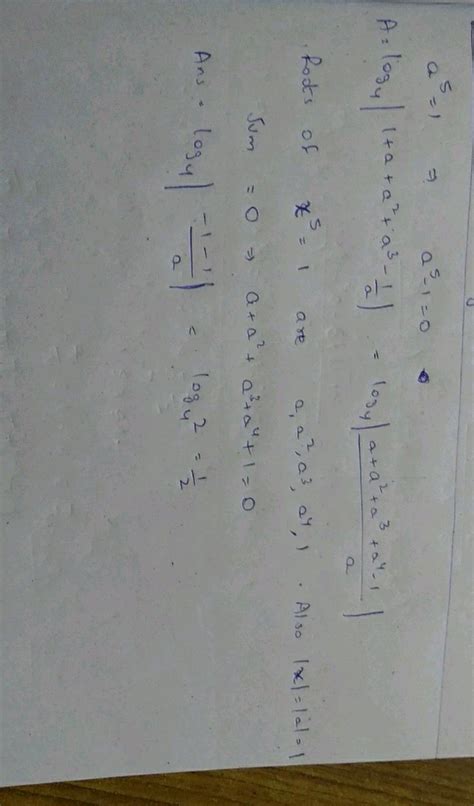 a⁵=1 ⇒ a⁵-1=0
A= log₄|1+a+a²+a³-1/a| = log₄|(a+a²+a³+a⁴-1)/a|
Roots of x⁵=1 are a, a², a³, a⁴, 1 . Also |x|=|a|=1
Sum = 0 ⇒ a+a²+a³+a⁴+1=0
Ans = log₄|(-1-1)/a| = log₄2 = 1/2